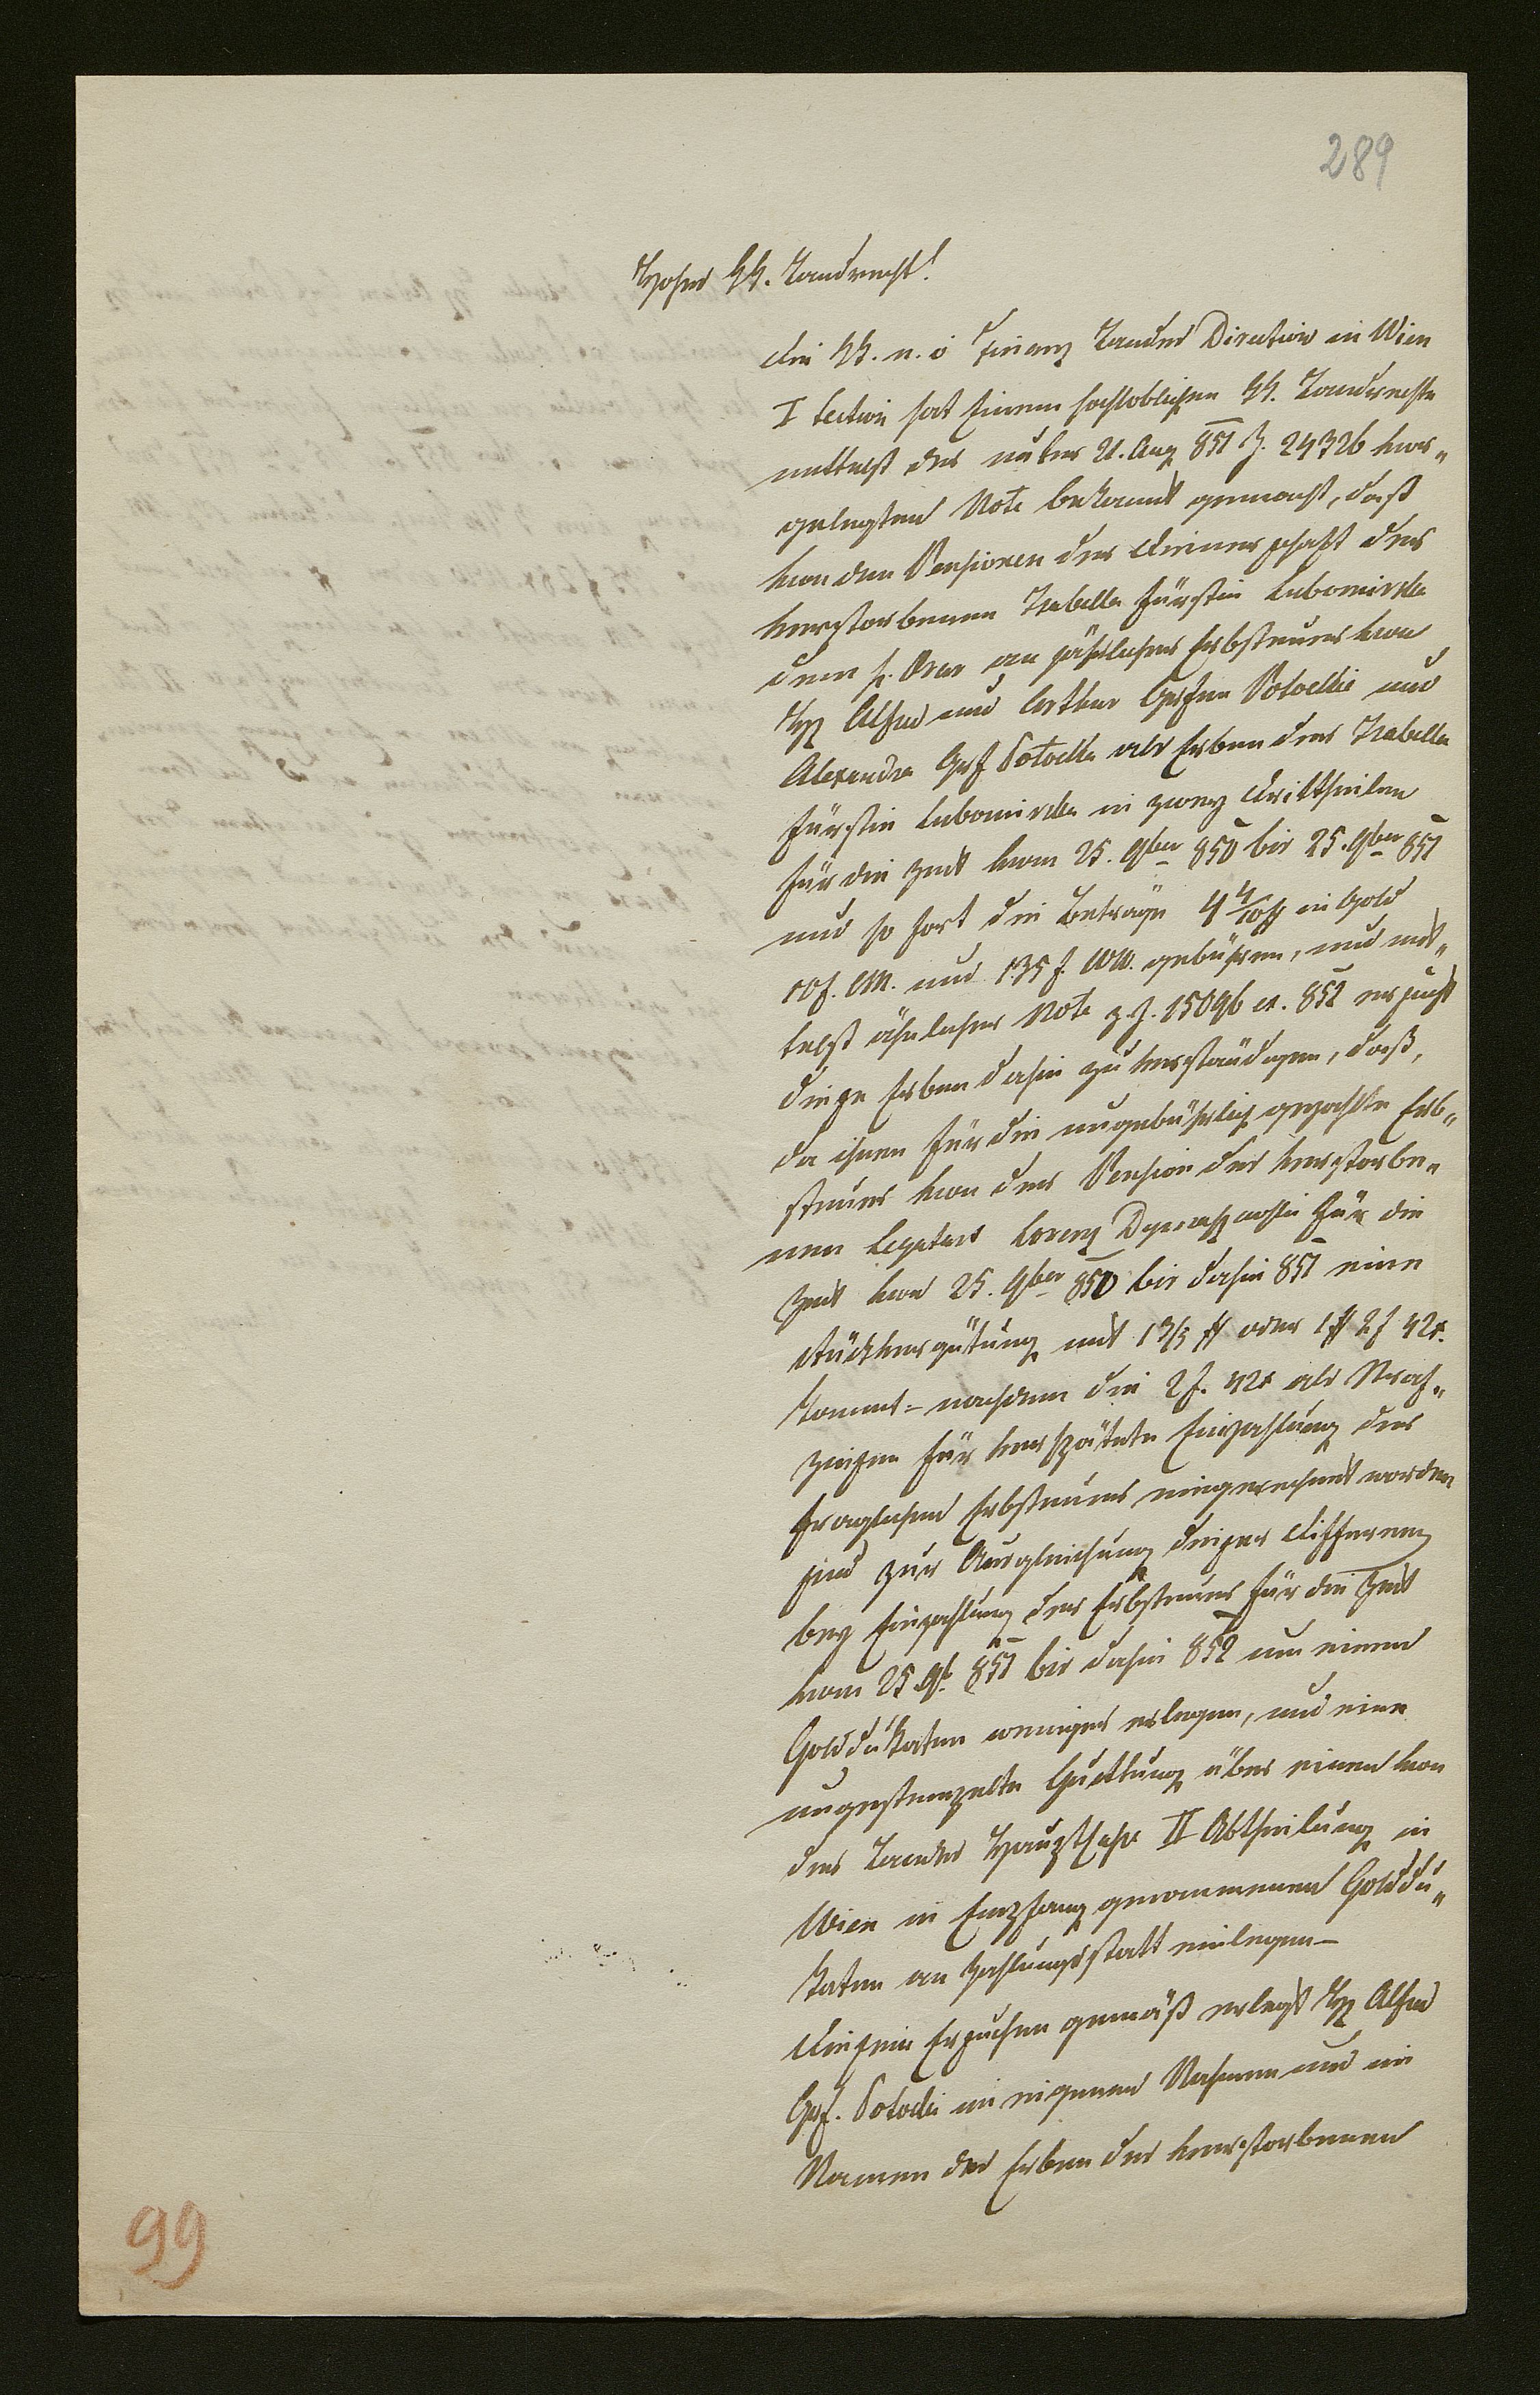 289
Hohes kk. Landrecht!
Die kk. n. ö Finanz Landes Direction in Wien
I Section hat Einem hochloblichen kk. Landrechte
mittelst der unterm 21. Aug 851 Z. 24326 vor„
gelegten Note bekannt gemacht, daß
von den Pensionen der Dienerschaft der
verstorbenen Isabella Fürstin Lubomirska
dem h. Aerar an jährlicher Erbsteuer von
H. Alfred und Arthur Grafen Potockie und
Alexandra Grf Potocka als Erben der Isabella
Fürstin Lubomirska in zwey Drittheilen
für die Zeit vom 25. 9ber 850 bis 25. 9ber 851
und so fort die Beträge 4 4/10 # in Gold
10 f. CM. und 135 f. WW. gebühren, und mit„
telst ähnlicher Note z. Z. 15096 ex. 852 ersucht
diese Erben dahin zu verständigen, daß,
da ihnen für die ungebührlich gezahlte Erb„
steuer von der Pension des verstorbe„
nen Legatars Lorenz für die
Zeit von 25. 9ber 850 bis dahin 851 eine
Rückvergütung mit 1 3/5 # oder 1 # 2 f 42 x.
kommt - nachdem die 2 f. 42 x als
zinsen für verspätete Einzahlung der
fraglichen Erbsteuer eingerechnet worden
sind zur Ausgleichung dieser Differenz
bey Einzahlung der Erbsteuer für die Zeit
vom 25 9b. 851 bis dahin 852 um einen
Golddukaten weniger erlegen, und eine
ungestempelte Quittung über einen von
der Landes Hauptcasse II Abtheilung in
Wien in Empfang genommenen Golddu„
katen an Zahlungsstatt einlegen -
Diesem Ersuchen gemäß erlegt H. Alfred
Grf. Potocki im eigenen Nahmen und im
Namen der Erben der verstorbenen
99